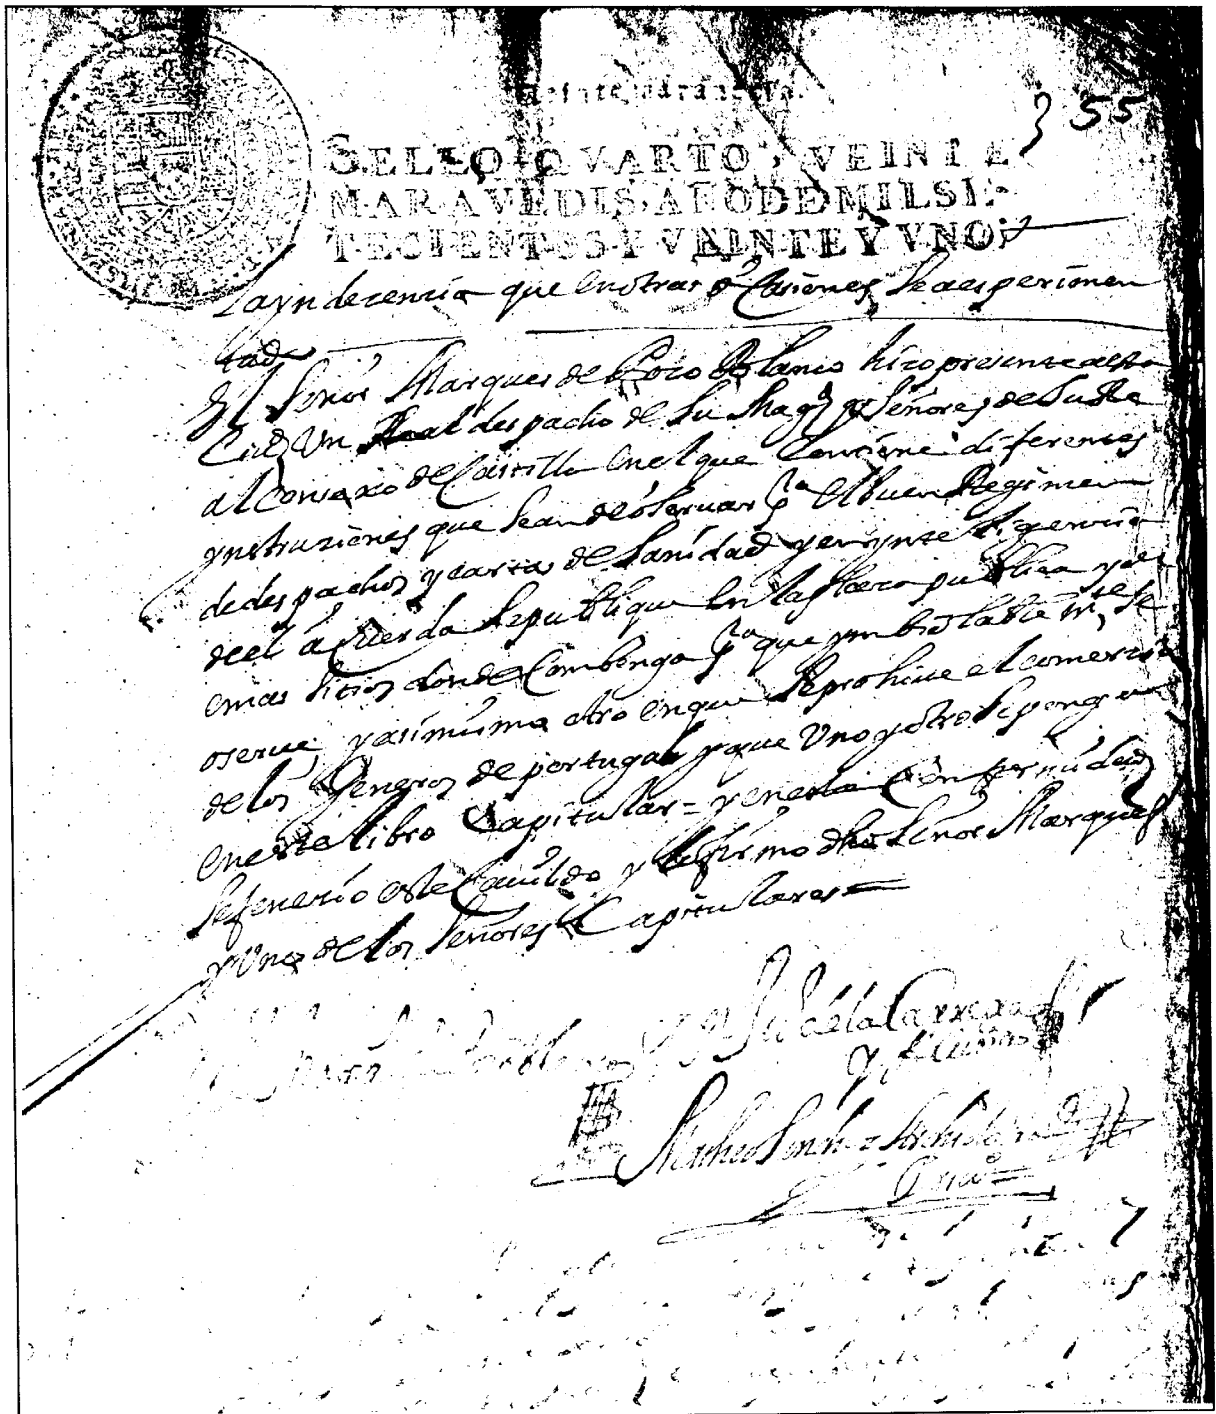 veinte maravedis.
355
SELLO QVARTO, VEINTE
MARAVEDIS, AÑO DE MIL SE-
TECIENTOS Y VEINTE Y VNO.
La yndecencia que en otras ocasiones se a esperimen
tado
El Señor Marques de Pozo Blanco hizo presente a esta
Ciud. Un Real despacho de Su Mag.d y Señores de Su Re
al Consexo de Castilla en el que Contiene diferentes
ynstruziones que se an de oseruar p.a el buen Regimen
de despachos y cartas de Sanidad y en ynteligencia
de el acuerda se publique en la Plaza publica y d
emas sitios donde Combenga p.a que ynbiolablem.te se
oserue, y asimismo otro en que se prohiue el comerzio
de los Generos de portugal y que Uno y otro se ponga
en este libro Capitular = y en esta Conformidad
se fenecio este Cauildo y lo firmo dho Señor Marques
y Uno de los Señores Capitulares =
de la Carrera
y
Matheo Sanch